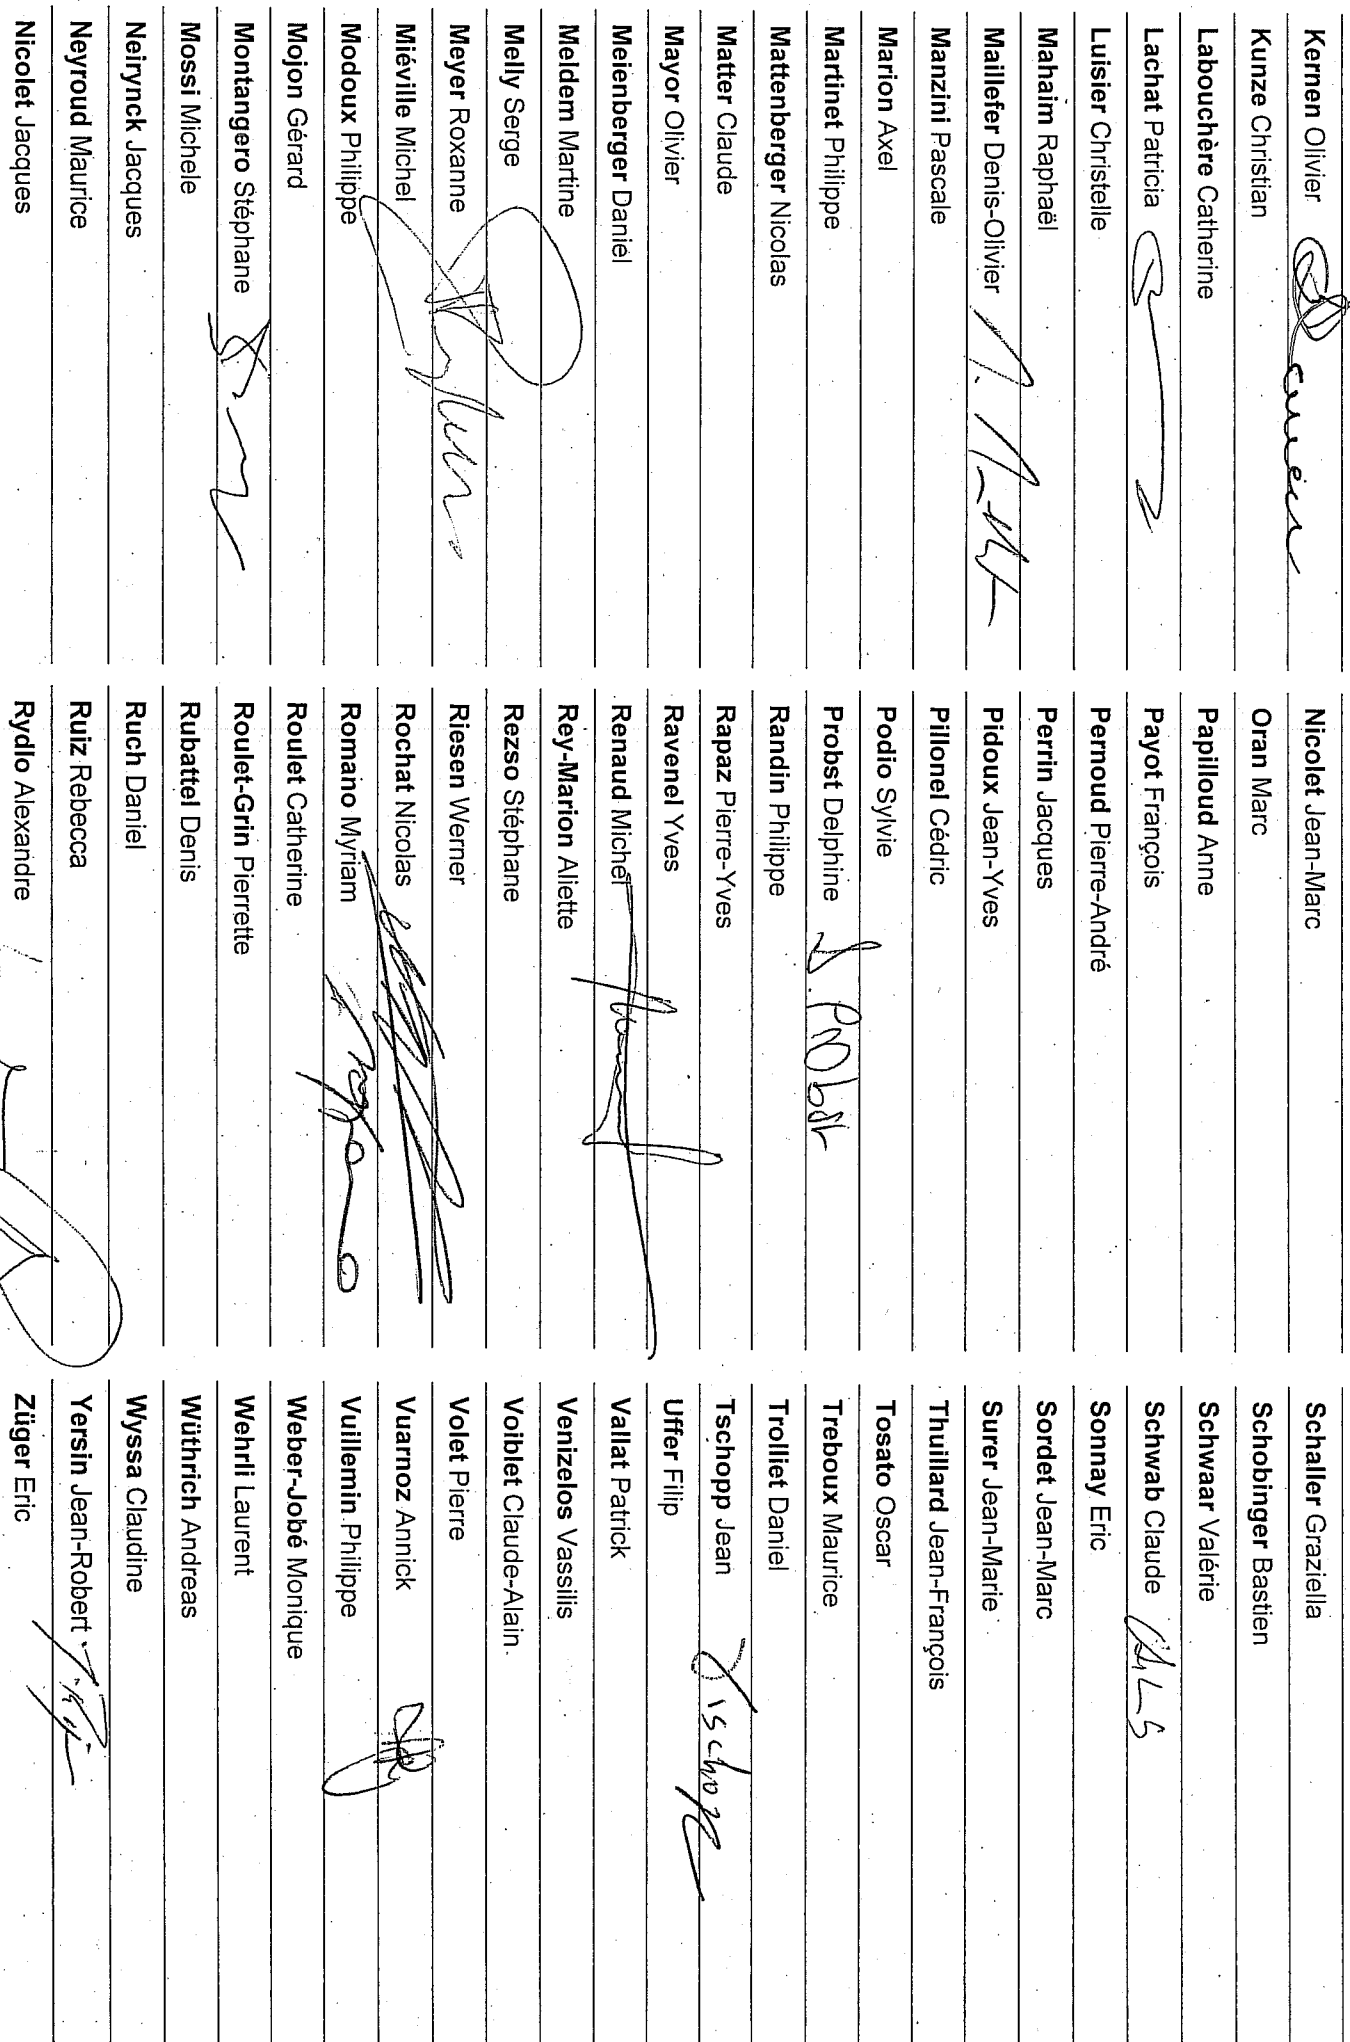 Kernen Olivier
Kunze Christian
Labouchère Catherine
Lachat Patricia
Luisier Christelle
Mahaim Raphaël
Maillefer Denis-Olivier
Manzini Pascale
Marion Axel
Martinet Philippe
Mattenberger Nicolas
Matter Claude
Mayor Olivier
Meienberger Daniel
Meldem Martine
Melly Serge
Meyer Roxanne
Miéville Michel
Modoux Philippe
Mojon Gérard
Montangero Stéphane
Mossi Michele
Neirynck Jacques
Neyroud Maurice
Nicolet Jacques
Nicolet Jean-Marc
Oran Marc
Papilloud Anne
Payot François
Pernoud Pierre-André
Perrin Jacques
Pidoux Jean-Yves
Pillonel Cédric
Podio Sylvie
Probst Delphine D. Probst
Randin Philippe
Rapaz Pierre-Yves
Ravenel Yves
Renaud Michel
Rey-Marion Aliette
Rezso Stéphane
Riesen Werner
Rochat Nicolas
Romano Myriam
Roulet Catherine
Roulet-Grin Pierrette
Rubattel Denis
Ruch Daniel
Ruiz Rebecca
Rydlo Alexandre
Schaller Graziella
Schobinger Bastien
Schwaar Valérie
Schwab Claude
Sonnay Eric
Sordet Jean-Marc
Surer Jean-Marie
Thuillard Jean-François
Tosato Oscar
Treboux Maurice
Trolliet Daniel
Tschopp Jean Tschopp
Uffer Filip
Vallat Patrick
Venizelos Vassilis
Voiblet Claude-Alain
Volet Pierre
Vuarnoz Annick
Vuillemin Philippe
Weber-Jobé Monique
Wehrli Laurent
Wüthrich Andreas
Wyssa Claudine
Yersin Jean-Robert
Züger Eric